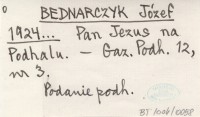 BEDNARCZYK Józef
1924... Pan Jezus na
Podhalu. – Gaz. Podh. 12,
nr 3.
Podanie podh.